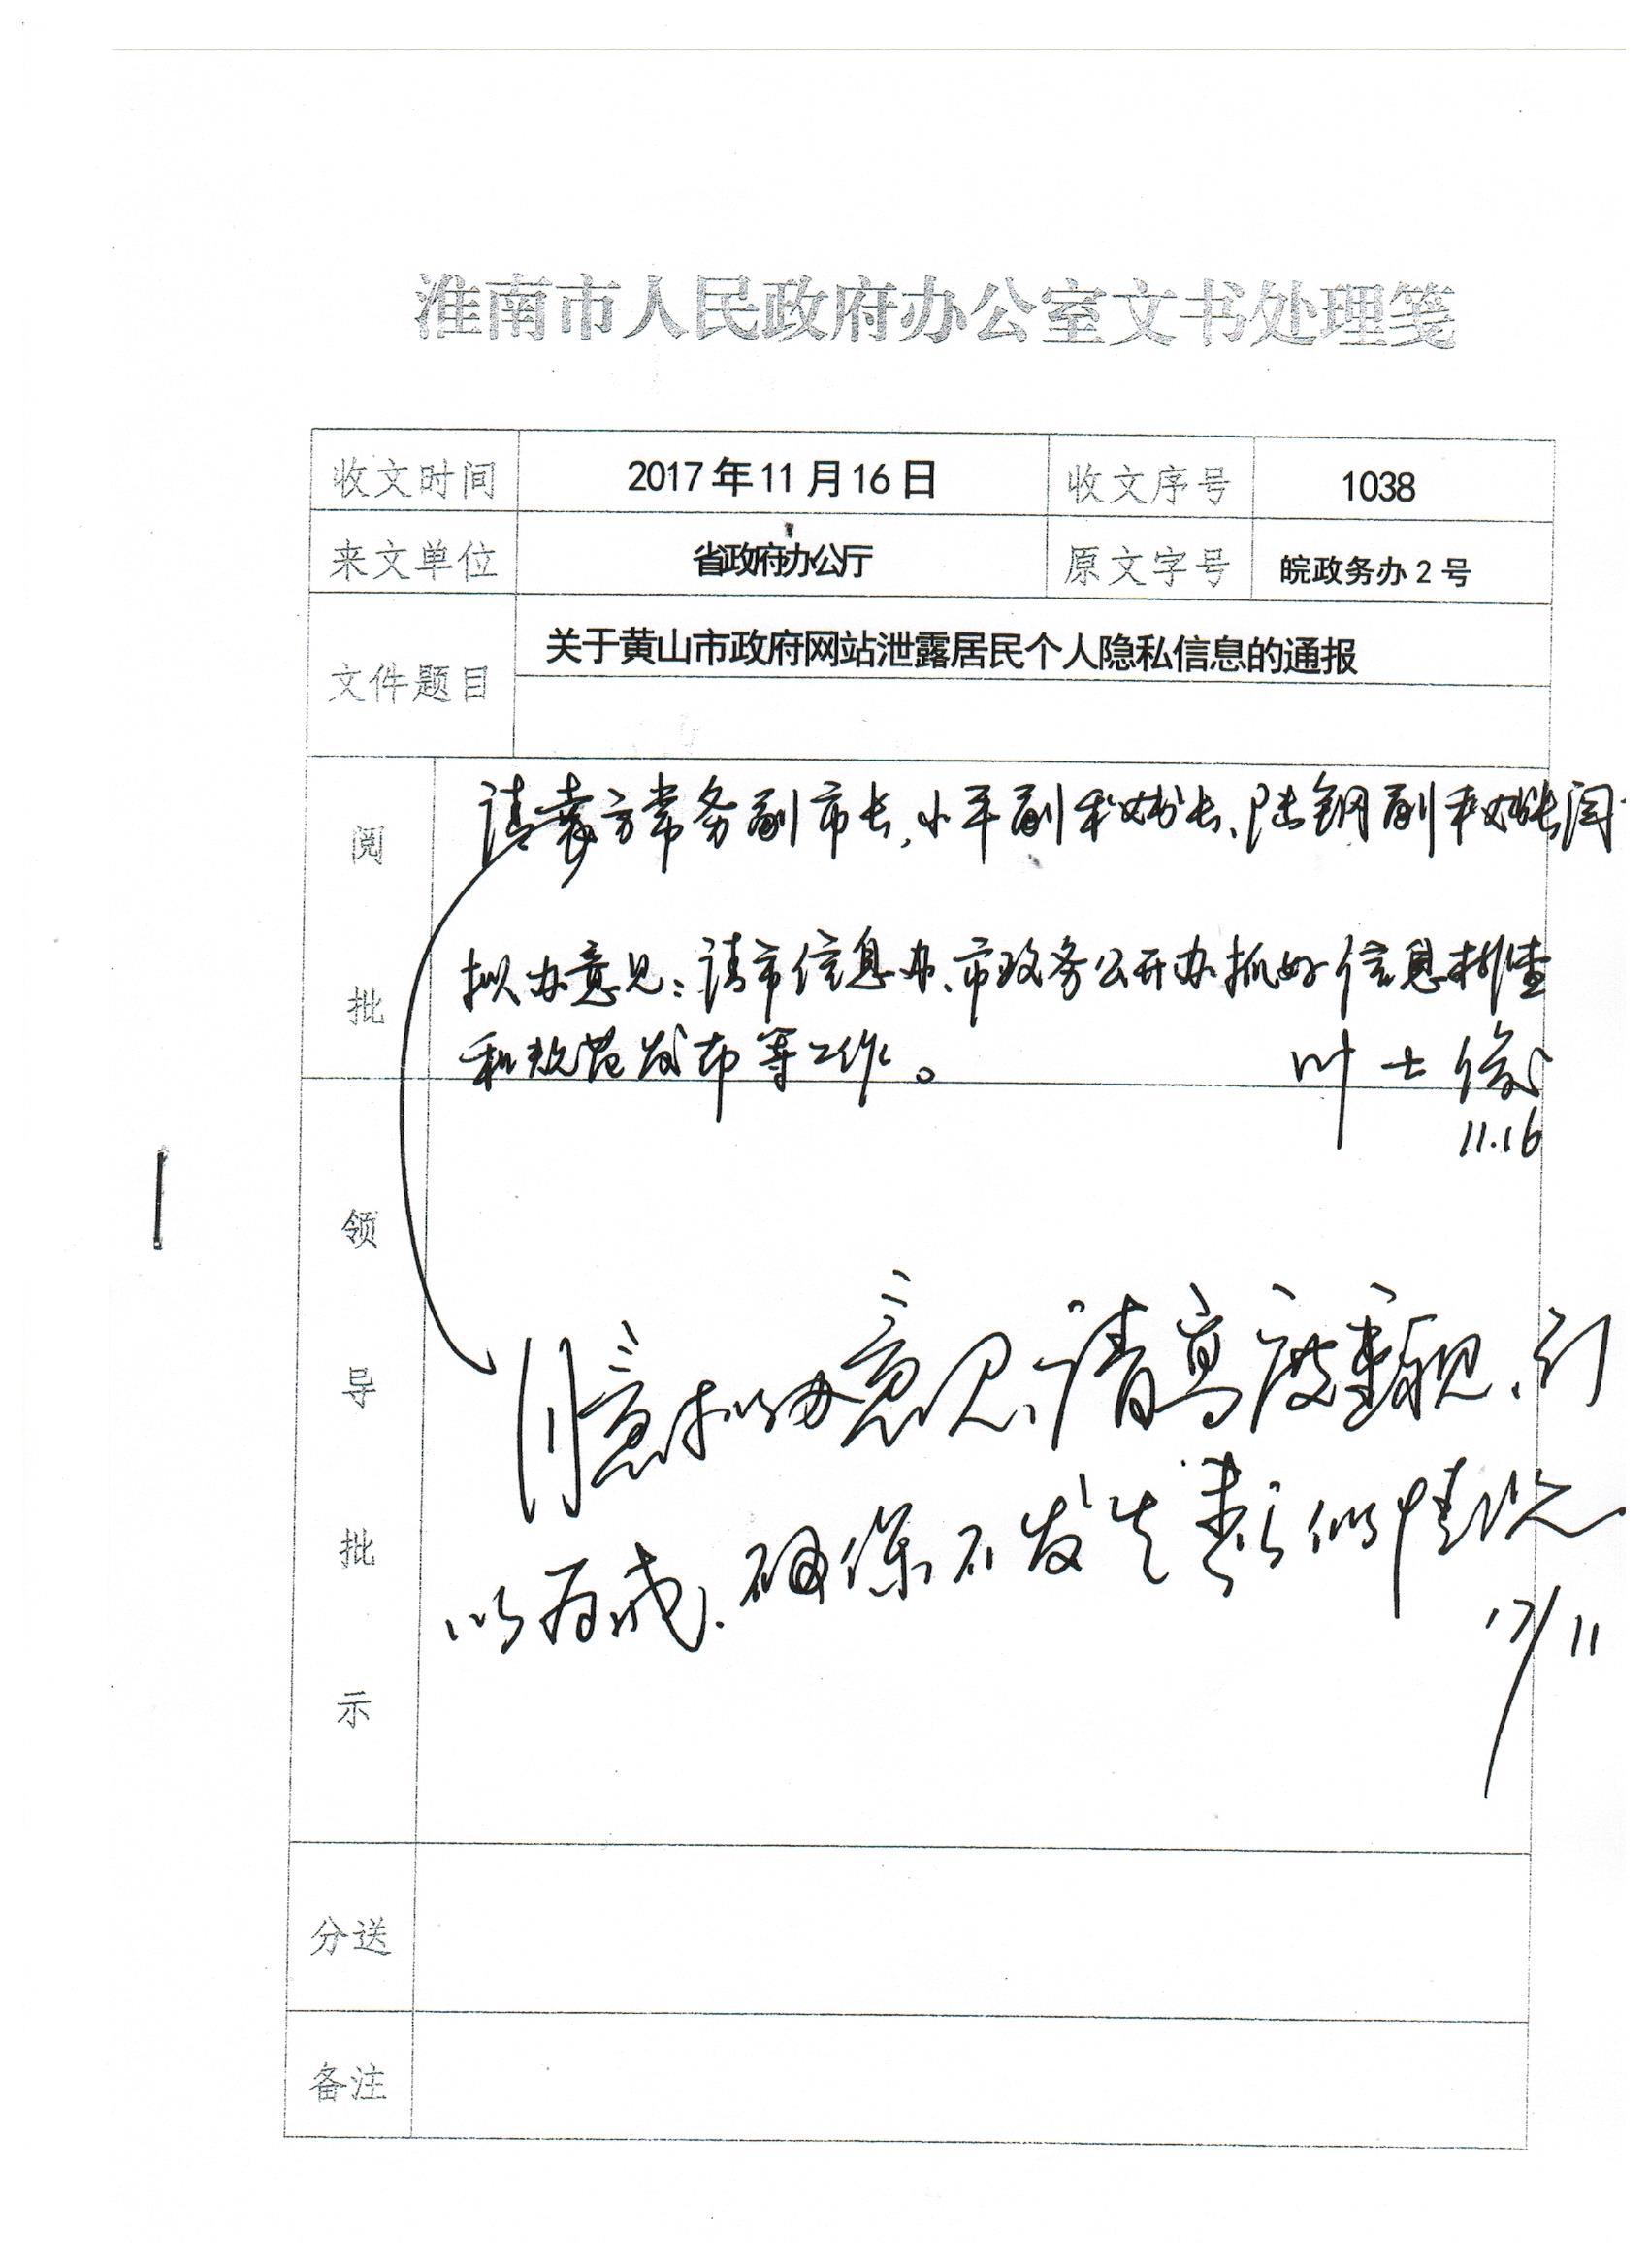 淮南市人民政府办公室文书处理笺
收文时间 2017年11月16日 收文序号 1038
来文单位 省政府办公厅 原文字号 皖政务办2号
文件题目 关于黄山市政府网站泄露居民个人隐私信息的通报
阅批
请袁方常务副市长,小平副秘书长、陆钢副秘书长阅
拟办意见:请市信息办、市政务公开办抓好信息排查
和规范发布等工作。 叶士俊
11.16
领导批示
同意拟办意见,请高度重视,引
以为戒.确保不发生类似情况
17/11
分送
备注